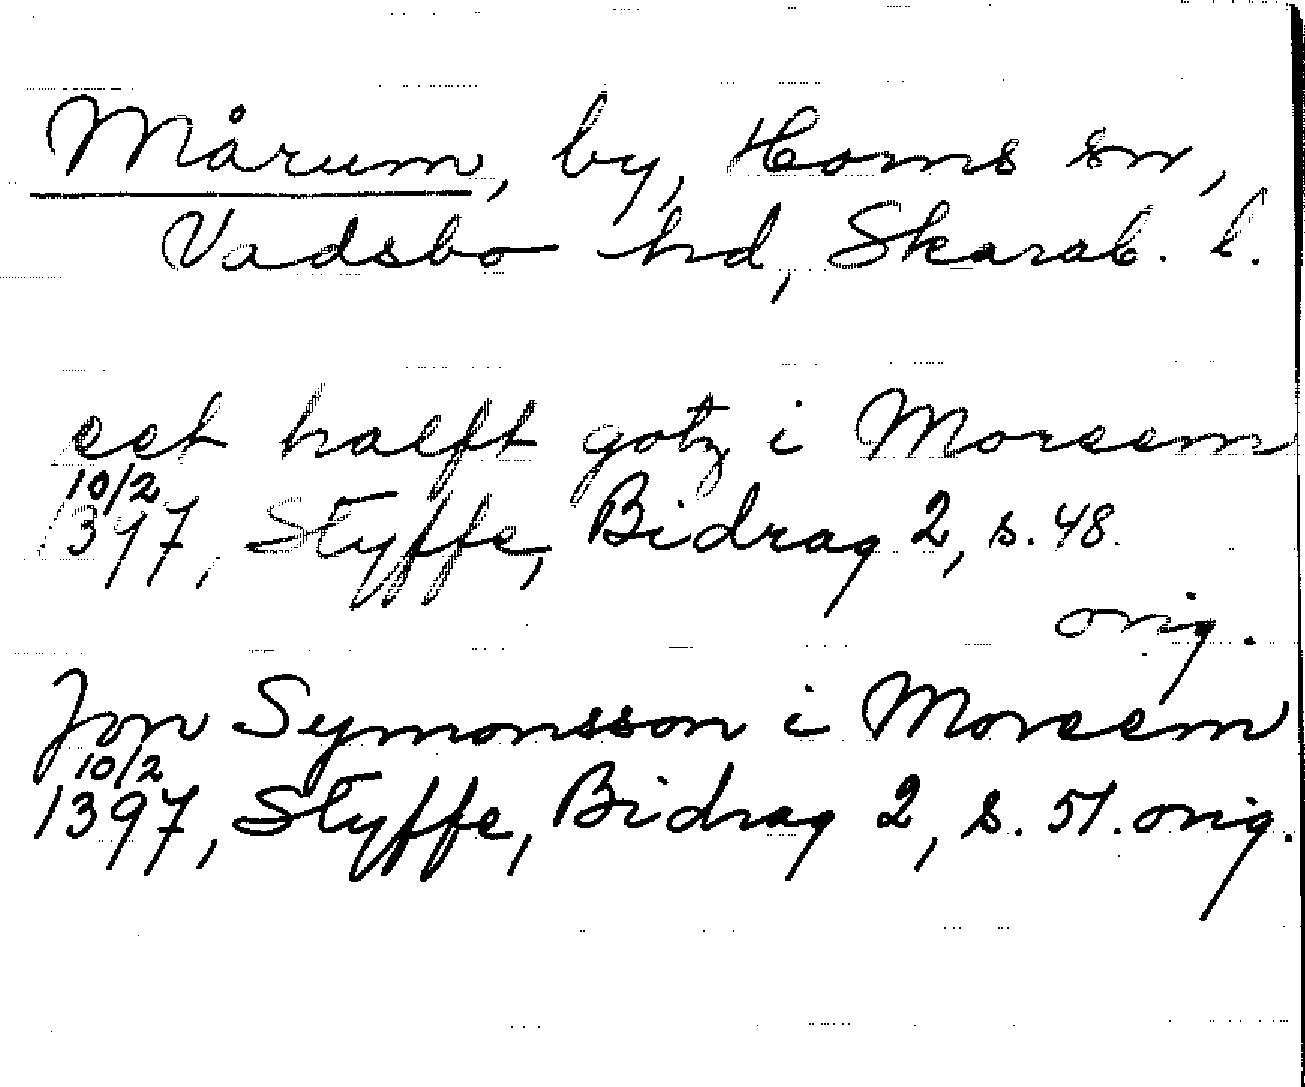 Mårum, by, Horns sn,
Vadsbo hd, Skarab. l.
eet halfft gotz i Moreem
10/2
1397, Styffe, Bidrag 2, s. 48.
orig.
Jon Symonsson i Moreem
10/2
1397, Styffe, Bidrag 2, s. 51. orig.